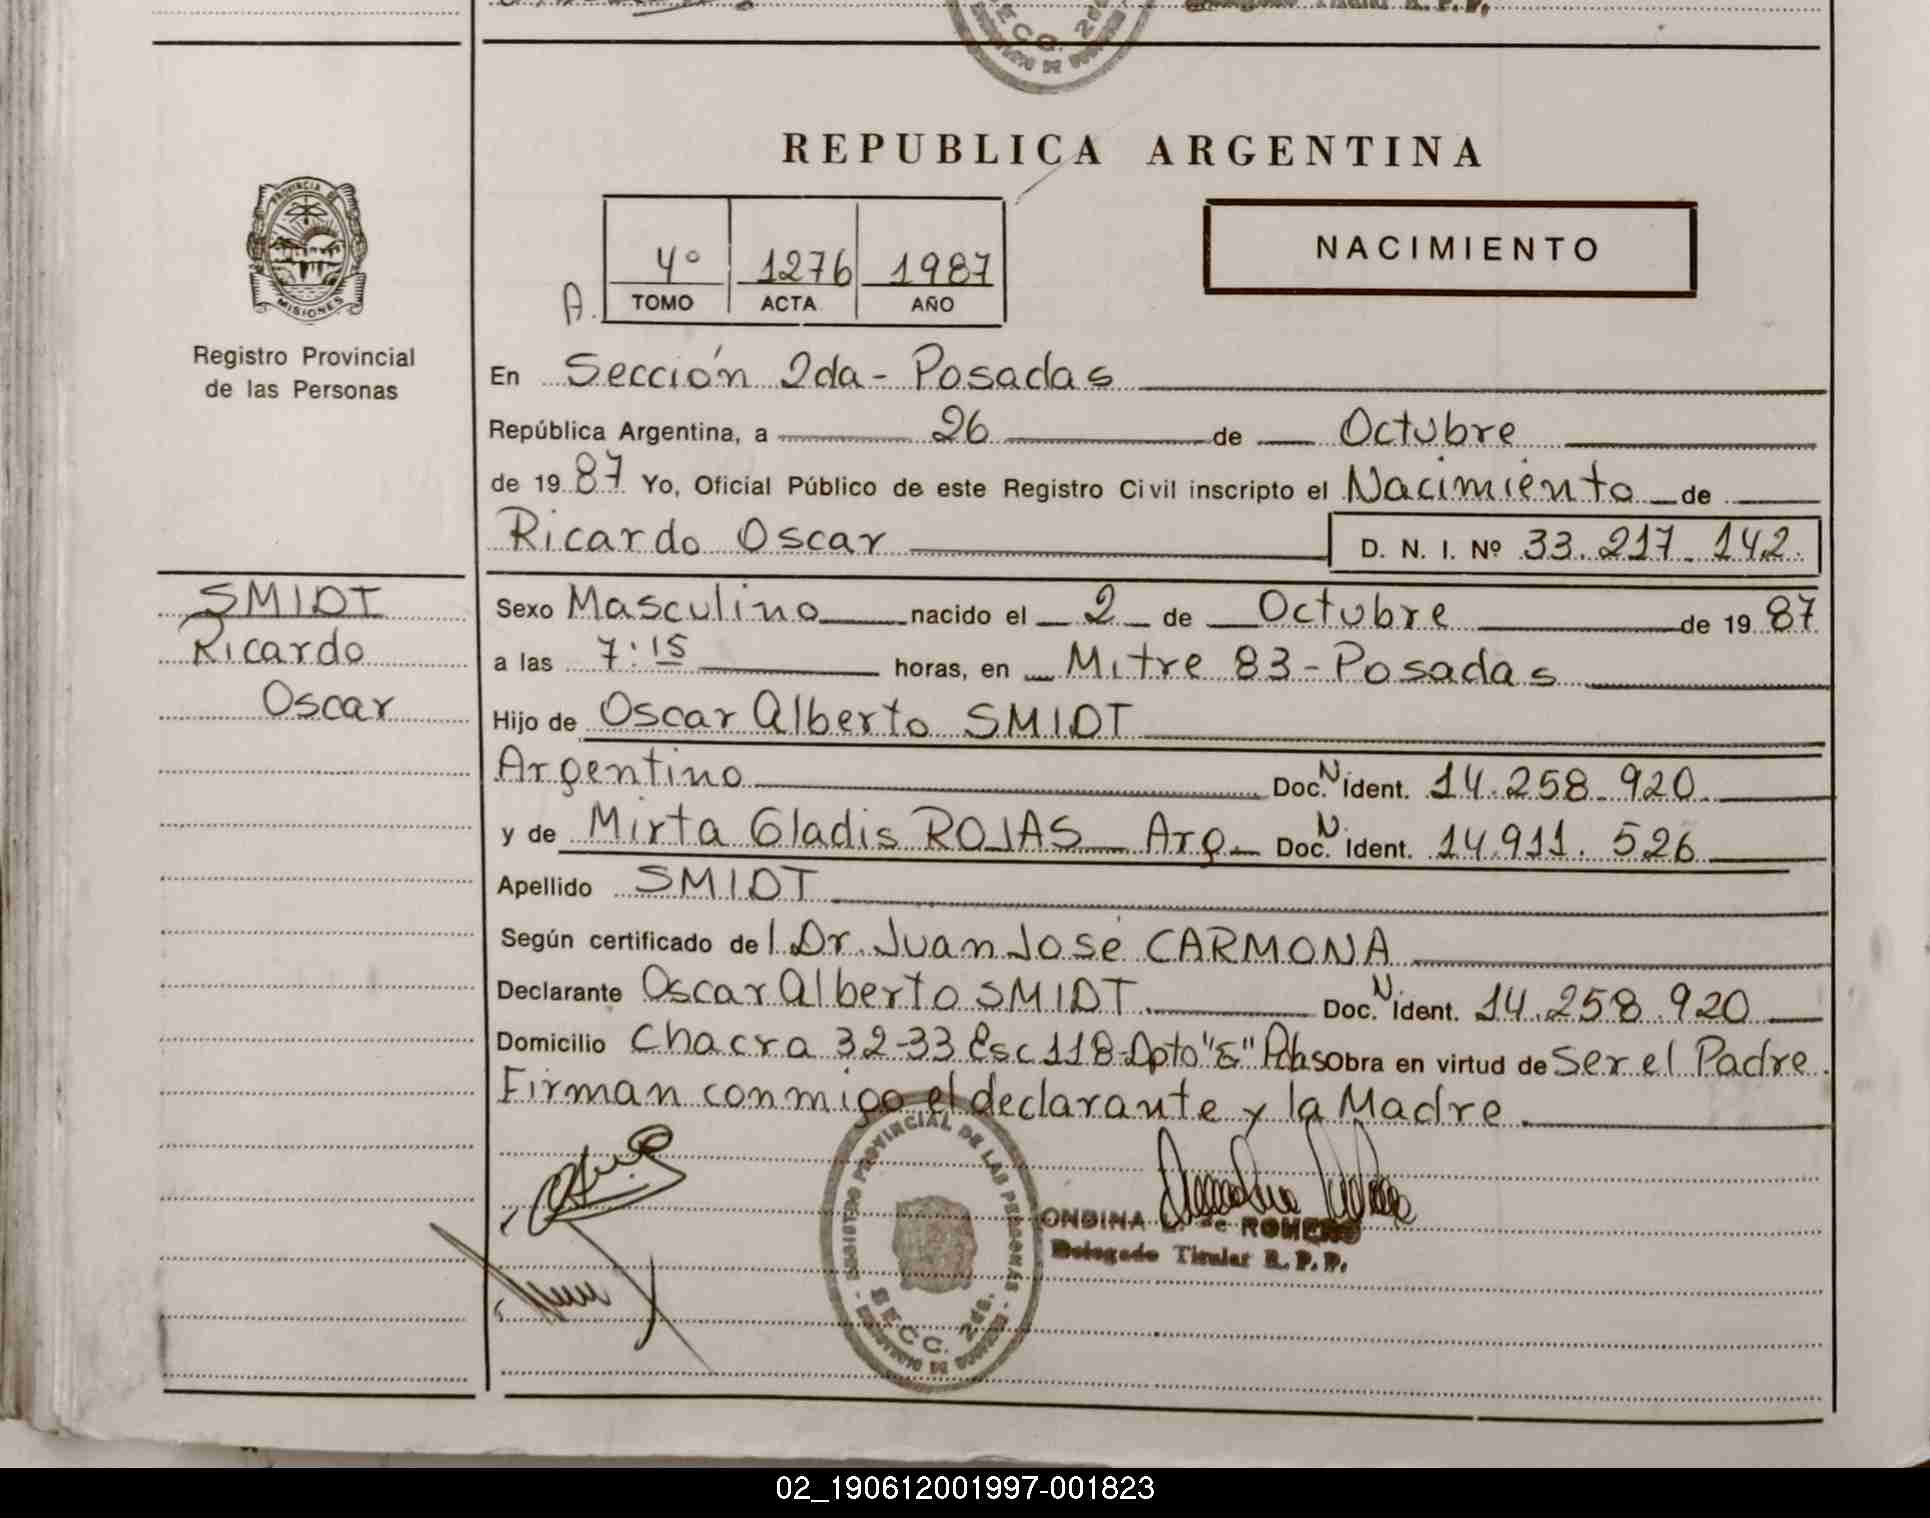 REPUBLICA ARGENTINA
PROVINCIA DE
MISIONES
Registro Provincial
de las Personas
A.
4º 1276 1987
TOMO ACTA AÑO
NACIMIENTO
En Sección 2da - Posadas
República Argentina, a 26 de Octubre
de 1987 Yo, Oficial Público de este Registro Civil inscripto el Nacimiento de
Ricardo Oscar D. N. I. Nº 33.217.142.
SMIDT
Ricardo
Oscar
Sexo Masculino nacido el 2 de Octubre de 1987
a las 7:15 horas, en Mitre 83 - Posadas
Hijo de Oscar Alberto SMIDT
Argentino Doc. N. Ident. 14.258.920
y de Mirta Gladis ROJAS Arg. Doc. N. Ident. 14.911.526
Apellido SMIDT
Según certificado del Dr. Juan José CARMONA
Declarante Oscar Alberto SMIDT Doc. N. Ident. 14.258.920
Domicilio Chacra 32-33 Esc 118-Dpto obra en virtud de Ser el Padre.
Firman conmigo el declarante y la Madre
REGISTRO PROVINCIAL DE LAS PERSONAS
SECC. 2da.
ONDINA de ROMERO
Delegado Titular R. P. P.
02_190612001997-001823